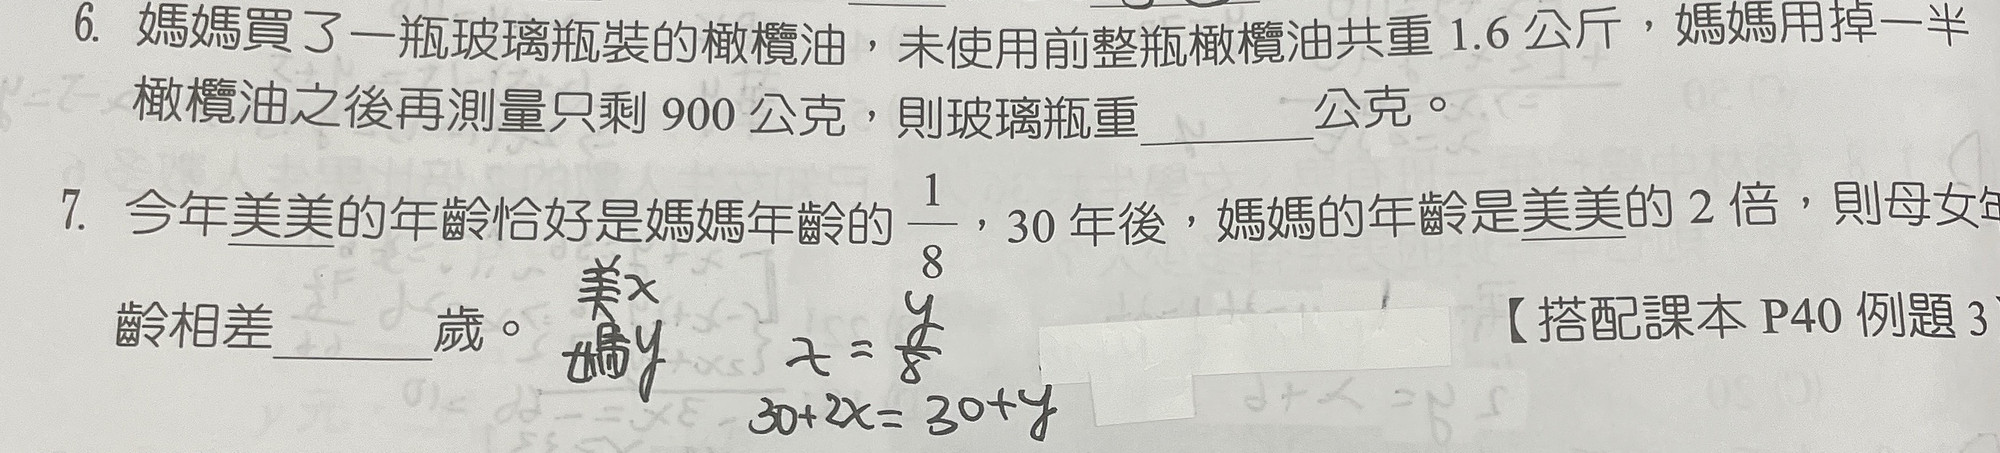 6. 媽媽買了一瓶玻璃瓶裝的橄欖油，未使用前整瓶橄欖油共重 1.6 公斤，媽媽用掉一半
橄欖油之後再測量只剩 900 公克，則玻璃瓶重______公克。
7. 今年美美的年齡恰好是媽媽年齡的 1/8，30 年後，媽媽的年齡是美美的 2 倍，則母女年
齡相差______歲。
【搭配課本 P40 例題 3】
美x
媽y
x = y/8
30+2x = 30+y